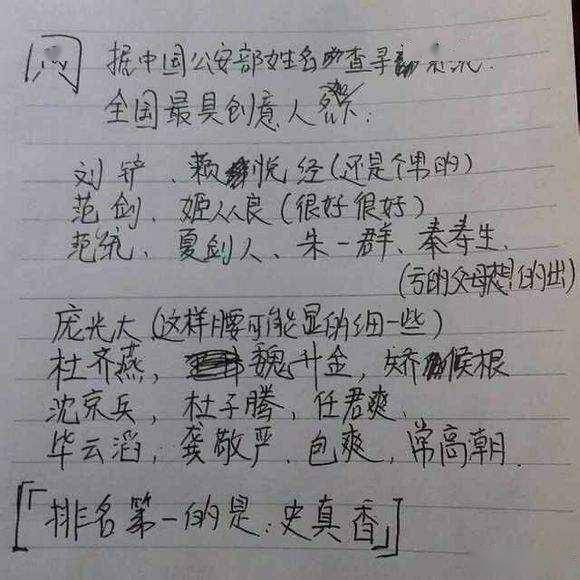 网 据中国公安部姓名查寻系统.
全国最具创意人名:
刘铲、赖悦经(还是个男的)
范剑、姬从良(很好很好)
范统、夏剑人、朱一群、秦寿生、
(亏的父母想的出)
庞光大(这样腰可能显的细一些)
杜齐燕,魏升金,矫候根
沈京兵,杜子腾,任君爽、
毕云滔,龚敬严、包爽,常高潮.
[「排名第一的是:史真香」]